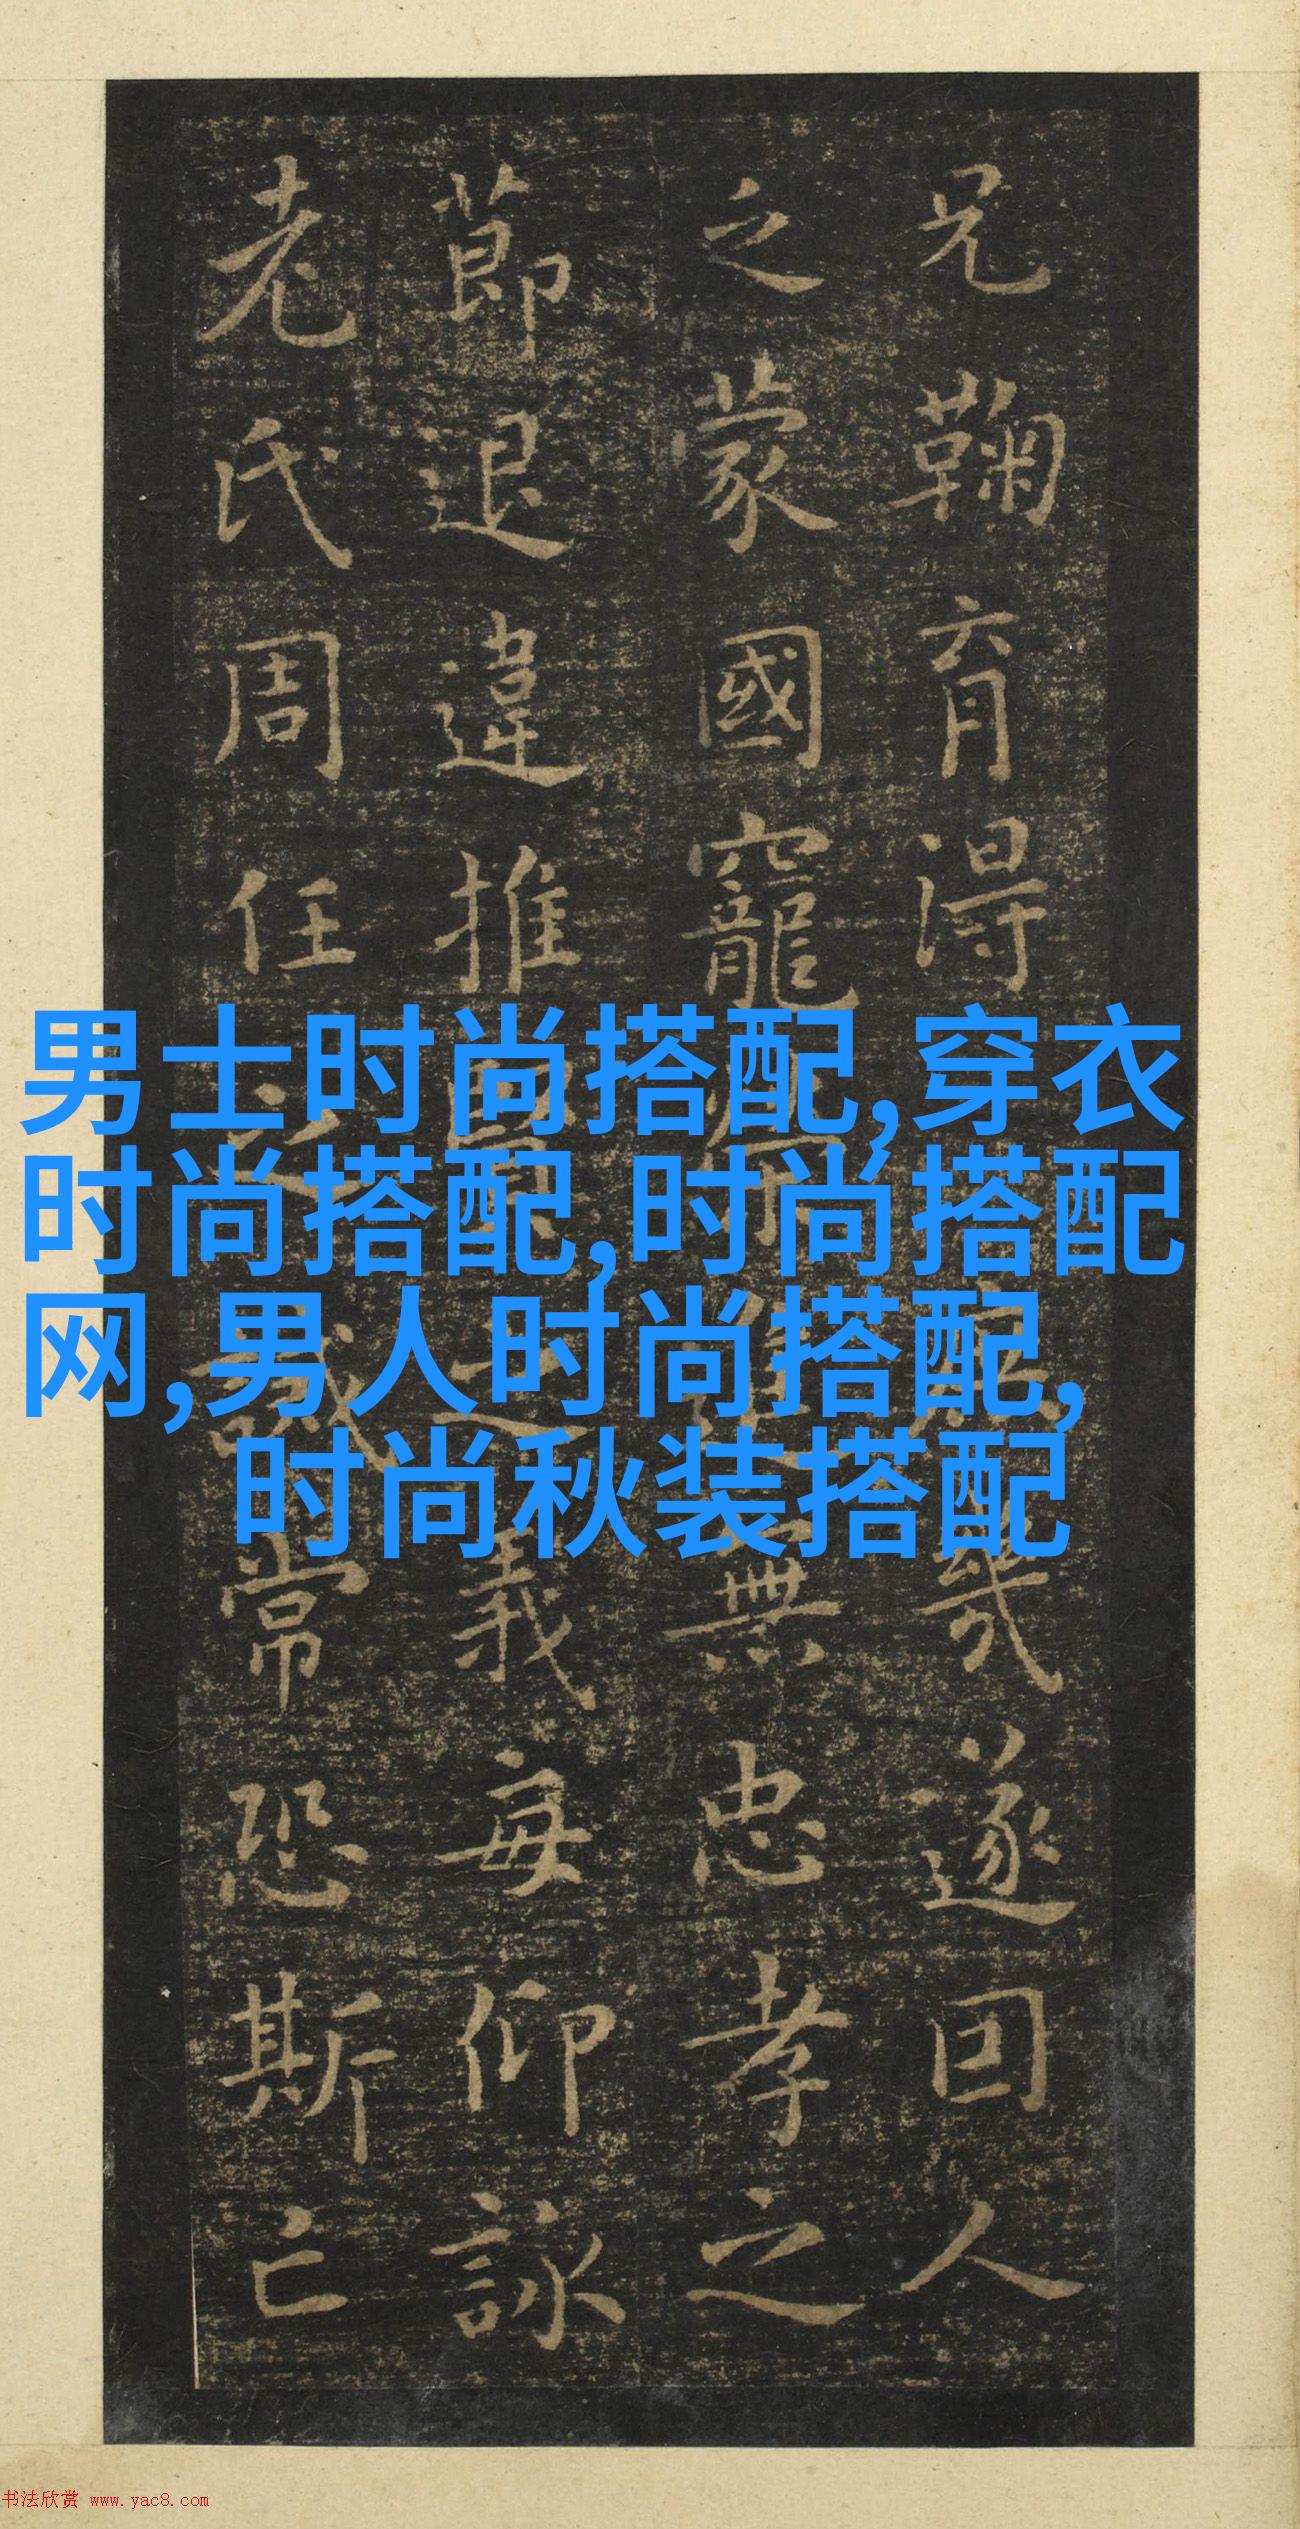 兄鞠育得幾遂因人
之蒙國寵榮進無忠孝之
莭退違推賢之義每仰詠
老氏周任之誡常恐斯亡
男士时尚搭配,穿衣
时尚搭配,时尚搭配
网,男人时尚搭配,
时尚秋装搭配
书法欣赏 www.yac8.com